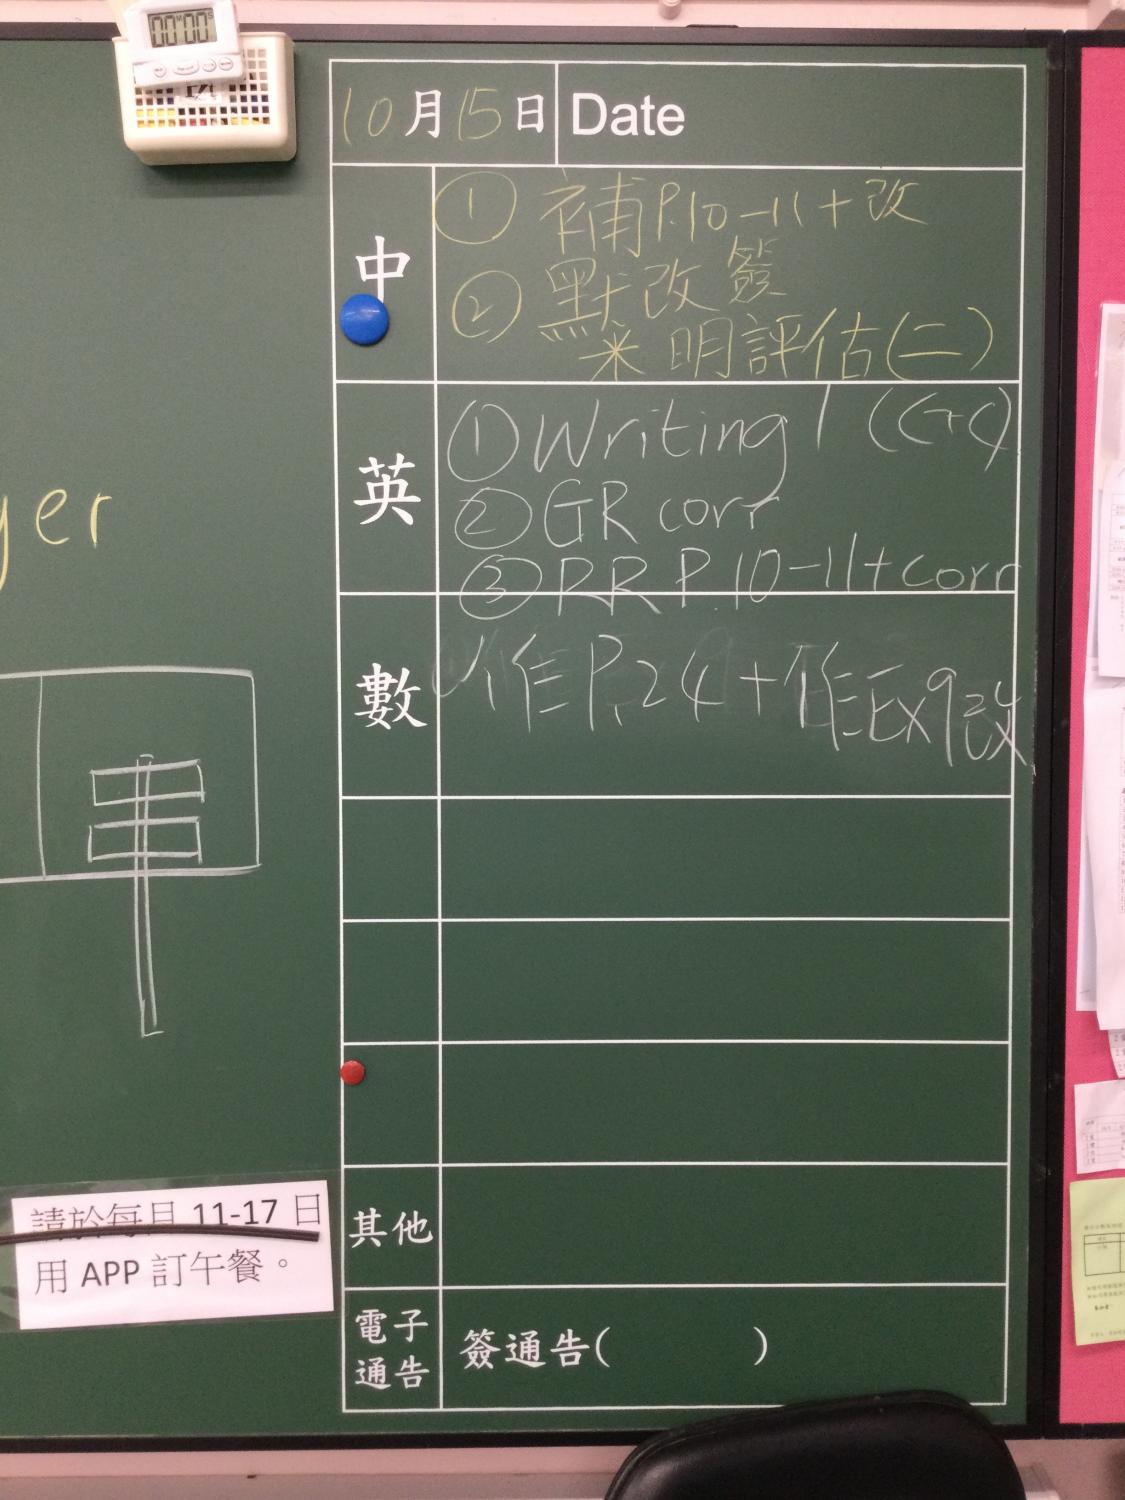 00:00
10月15日 Date
中
① 補P.10-11+改
② 默改簽
米 明評估(二)
英
① Writing 1 (G+C)
② GR corr
③ RR P.10-11+corr
數
作P.24+作Ex9改
yer
其他
電子
通告
簽通告( )
請於每月 11-17 日
用 APP 訂午餐。